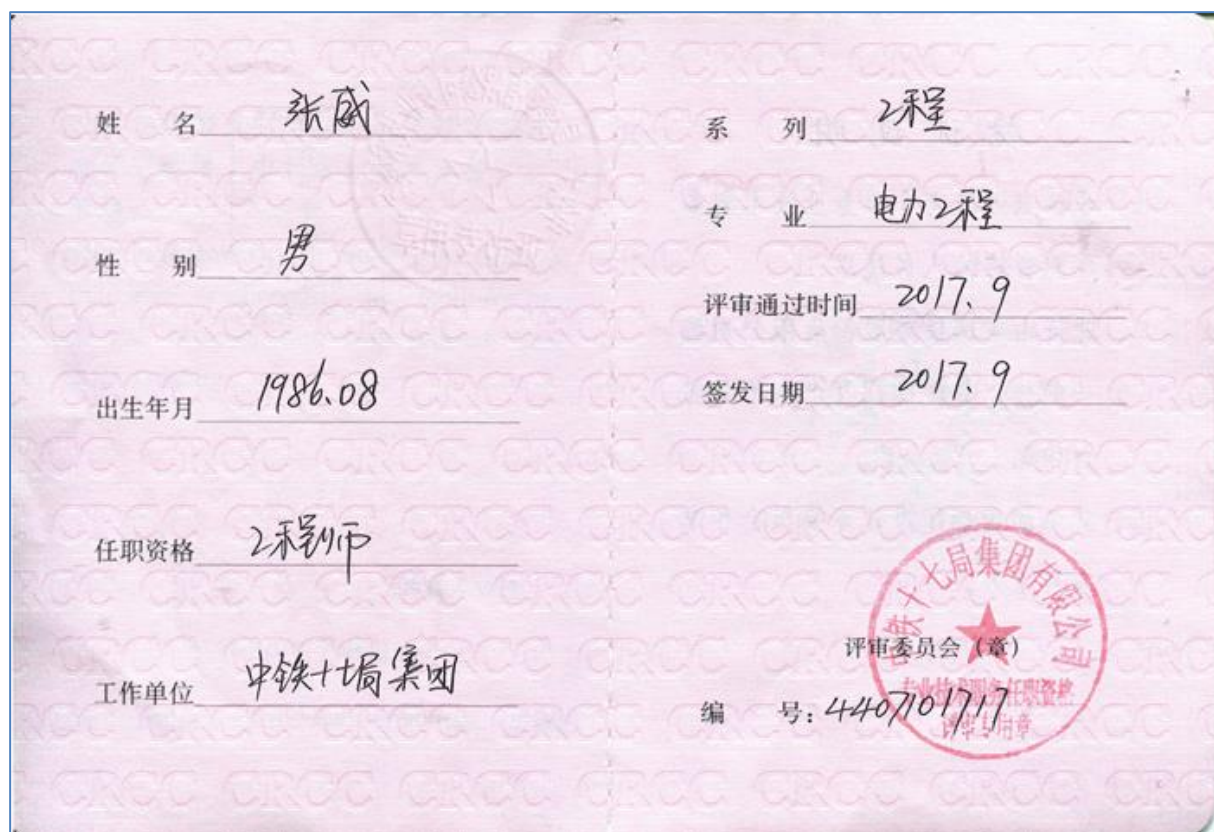 姓 名 张威
性 别 男
出生年月 1986.08
任职资格 工程师
工作单位 中铁十七局集团
系 列 工程
专 业 电力工程
评审通过时间 2017.9
签发日期 2017.9
中铁十七局集团有限公司
评审委员会（章）
专业技术职务任职资格
评审专用章
编 号：4407101717
CRCC